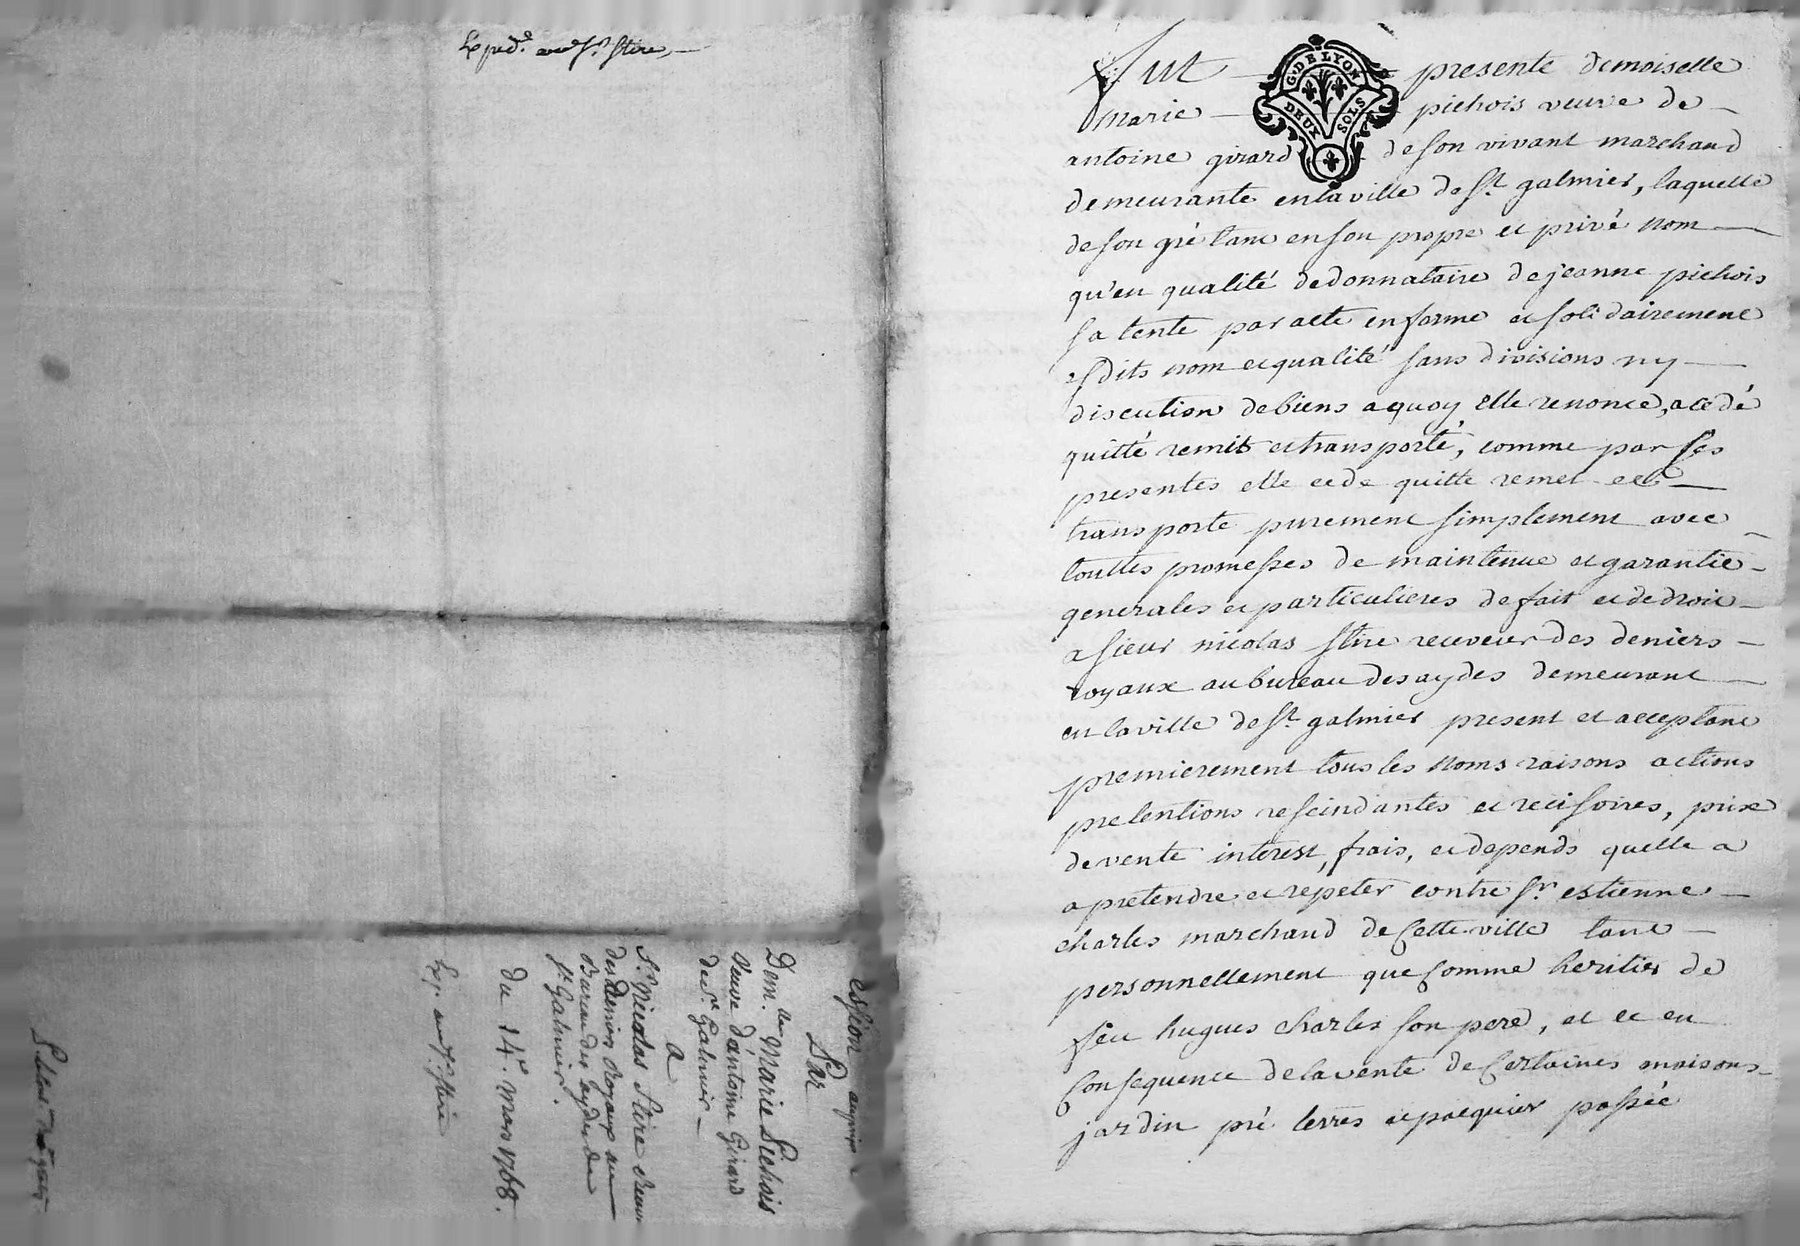 Exped.é au d.t Sr. Stire
Cession
Par
Dem.lle Marie Pichois
Veuve d'antoine Girard
de St. Galmier
a
Sr. Nicolas Stire
des deniers Royaux au
Bureau des aydes de
St. Galmier.
du 14e. mars 1768.
G. DE LYON
DEUX SOLS
Fut presente demoiselle
marie pichois veuve de
antoine girard de son vivant marchand
demeurante en la ville de St. galmier, laquelle
de son gré tant en son propre et privé nom
qu'en qualité de donnataire de jeanne pichois
sa tente par acte en forme et solidairement
esdits nom et qualité sans divisions ny
discution de biens a quoy elle renonce, a cedé
quitté remis et transporté, comme par ses
presentes elle cede quitte remet et
transporte purement simplement avec
touttes promesses de maintenue et garantie
generales et particulieres de fait et de droit
a sieur nicolas Stire receveur des deniers
royaux au bureau des aydes demeurant
en la ville de St. galmier present et acceptant
premierement tous les noms raisons actions
pretentions rescindantes et recisoires, prix
de vente interest, frais, et depends quelle a
a pretendre et repeter contre Sr. estienne
charles marchand de Cette ville tant
personnellement que Comme heritier de
feu hugues charles son pere, et ce en
Consequence de la vente de Certaines maisons
jardin pré terres et pacquier passée